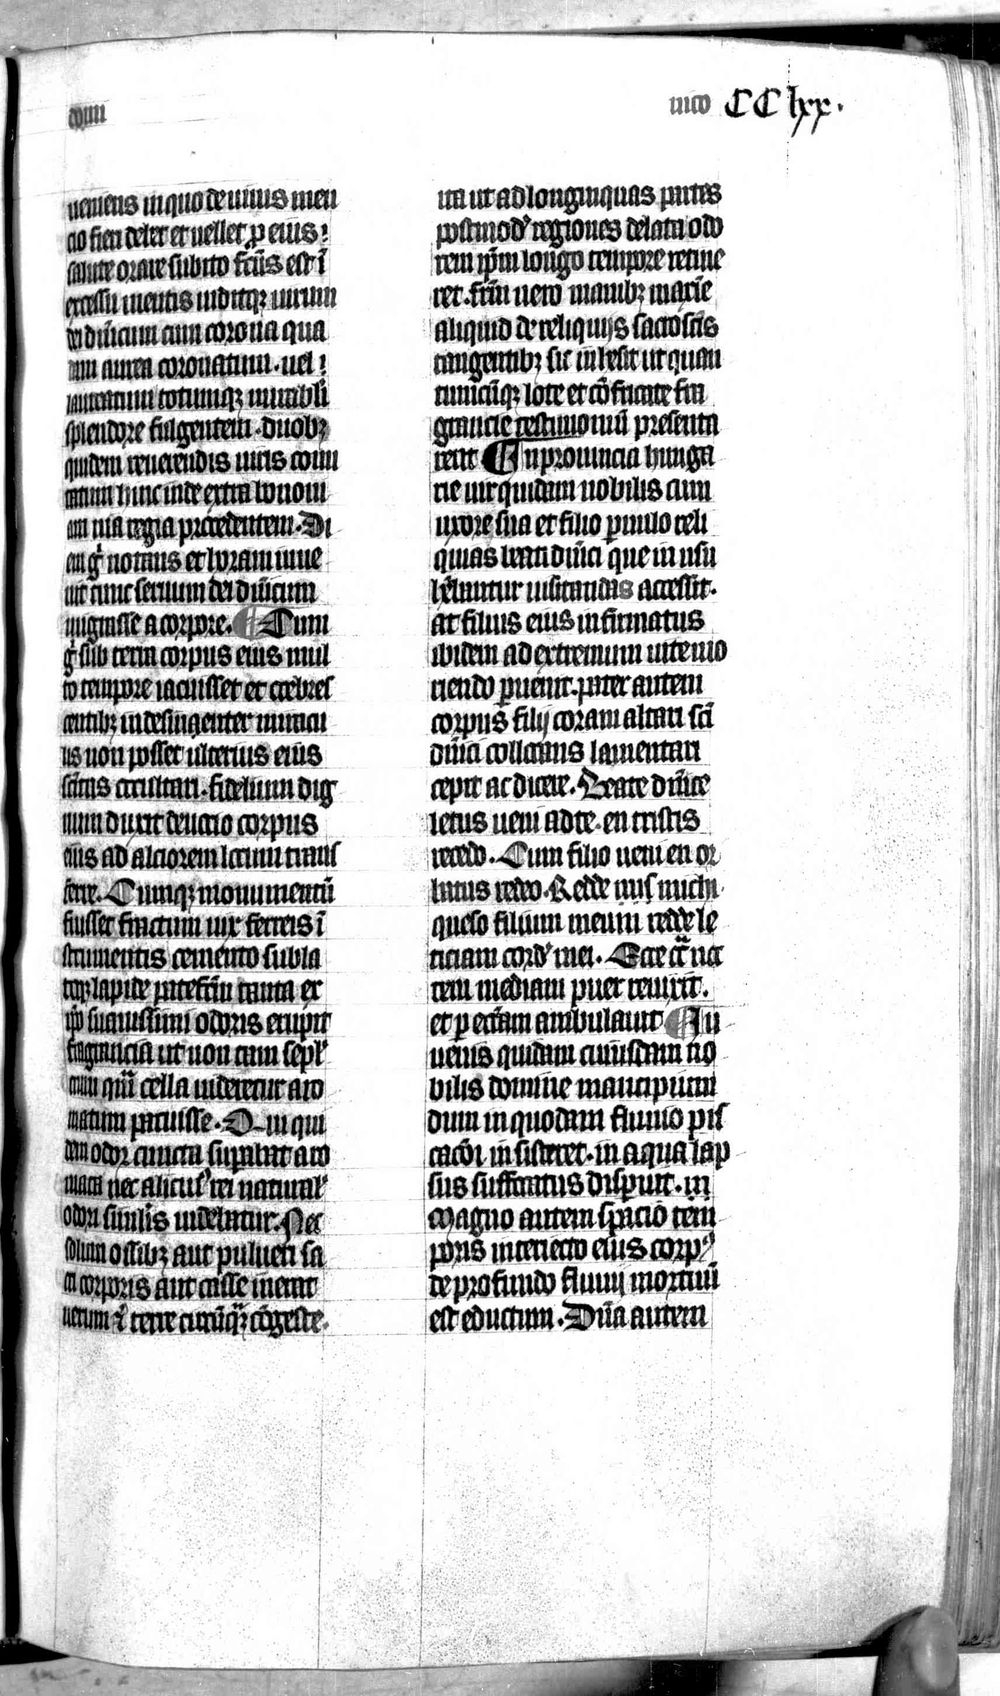 domi
nico CC lxx.
ueniens in quo de uiuis men
cio fieri debet et uellet ꝓ eius
salute orare subito fc̄us est ī
excessu mentis uiditqꝫ uirum
dei dn̄icum cum corona qua
dam aurea coronatum. uel
laureatum totumqꝫ mirabili
splendore fulgentem. duobꝫ
quidem reuerendis uiris comi
tatum hinc inde extra bononi
am uia regia precedentem. Di
em gͥ notans et horam inue
nit tunc seruum dei dn̄icum
migrasse a corpore. Cum
gͥ sub terra corpus eius mul
to tempore iacuisset et crebres
centibꝫ indesinenter miracu
lis non posset ulterius eius
sc̄itas occultari. fidelium dig
num duxit deuocio corpus
eius ad alciorem locum trans
ferre. Cumqꝫ monumentū
fuisset fractum uix ferreis ī
strumentis cemento subla
toqꝫ lapide patefc̄m tanta ex
ip̄o suauissimi odoris erupit
fragrancia ut non tam sepl̓
crum qm̄ cella uideretur aro
matum patuisse. Qui qui
dem odor cuncta suꝑabat aro
mata nec alicui᾽ rei natural̓
odori similis uidebatur. Nec
solum ossibꝫ aut pulueri sa
cri corporis aut casse inerat
uerum ⁊ terre circūqꝫ cōgeste.
ita ut ad longinquas partes
postmod̓ regiones delata odo
rem ip̄m longo tempore retine
ret. frm̄ uero manibꝫ maxīe
aliquid de reliquijs sacrosc̄is
tangentibꝫ sic inhesit ut quan
tumcūqꝫ lote et cōfricate fra
grancie testimoniū presenta
rent. In prouincia hunga
rie uir quidam nobilis cum
uxore sua et filio paruulo reli
quias beati dn̄ici que in usu
hēbantur uisitandas accessit.
at filius eius infirmatus
ibidem ad extremum uite mo
riendo ꝑuenit. pater autem
corpus filij coram altari sc̄i
dn̄ici collocans lamentari
cepit ac dicere. Beate dn̄ice
letus ueni ad te. en tristis
recedo. Cum filio ueni en or
batus redeo. Redde mi᾽ michi
queso filium meum redde le
ticiam cord̓ mei. Ecce circa noc
tem mediam puer reuixit.
et ꝑ eccl̄iam ambulauit. Iu
uenis quidam cuiusdam no
bilis domine mancipium
dum in quodam fluuio pis
cacōi insisteret. in aqua lap
sus suffocatus disꝑuit. in
magno autem spacio tem
poris interiecto eius corp᾽
de profundo fluuij mortuū
est eductum. Dn̄a autem